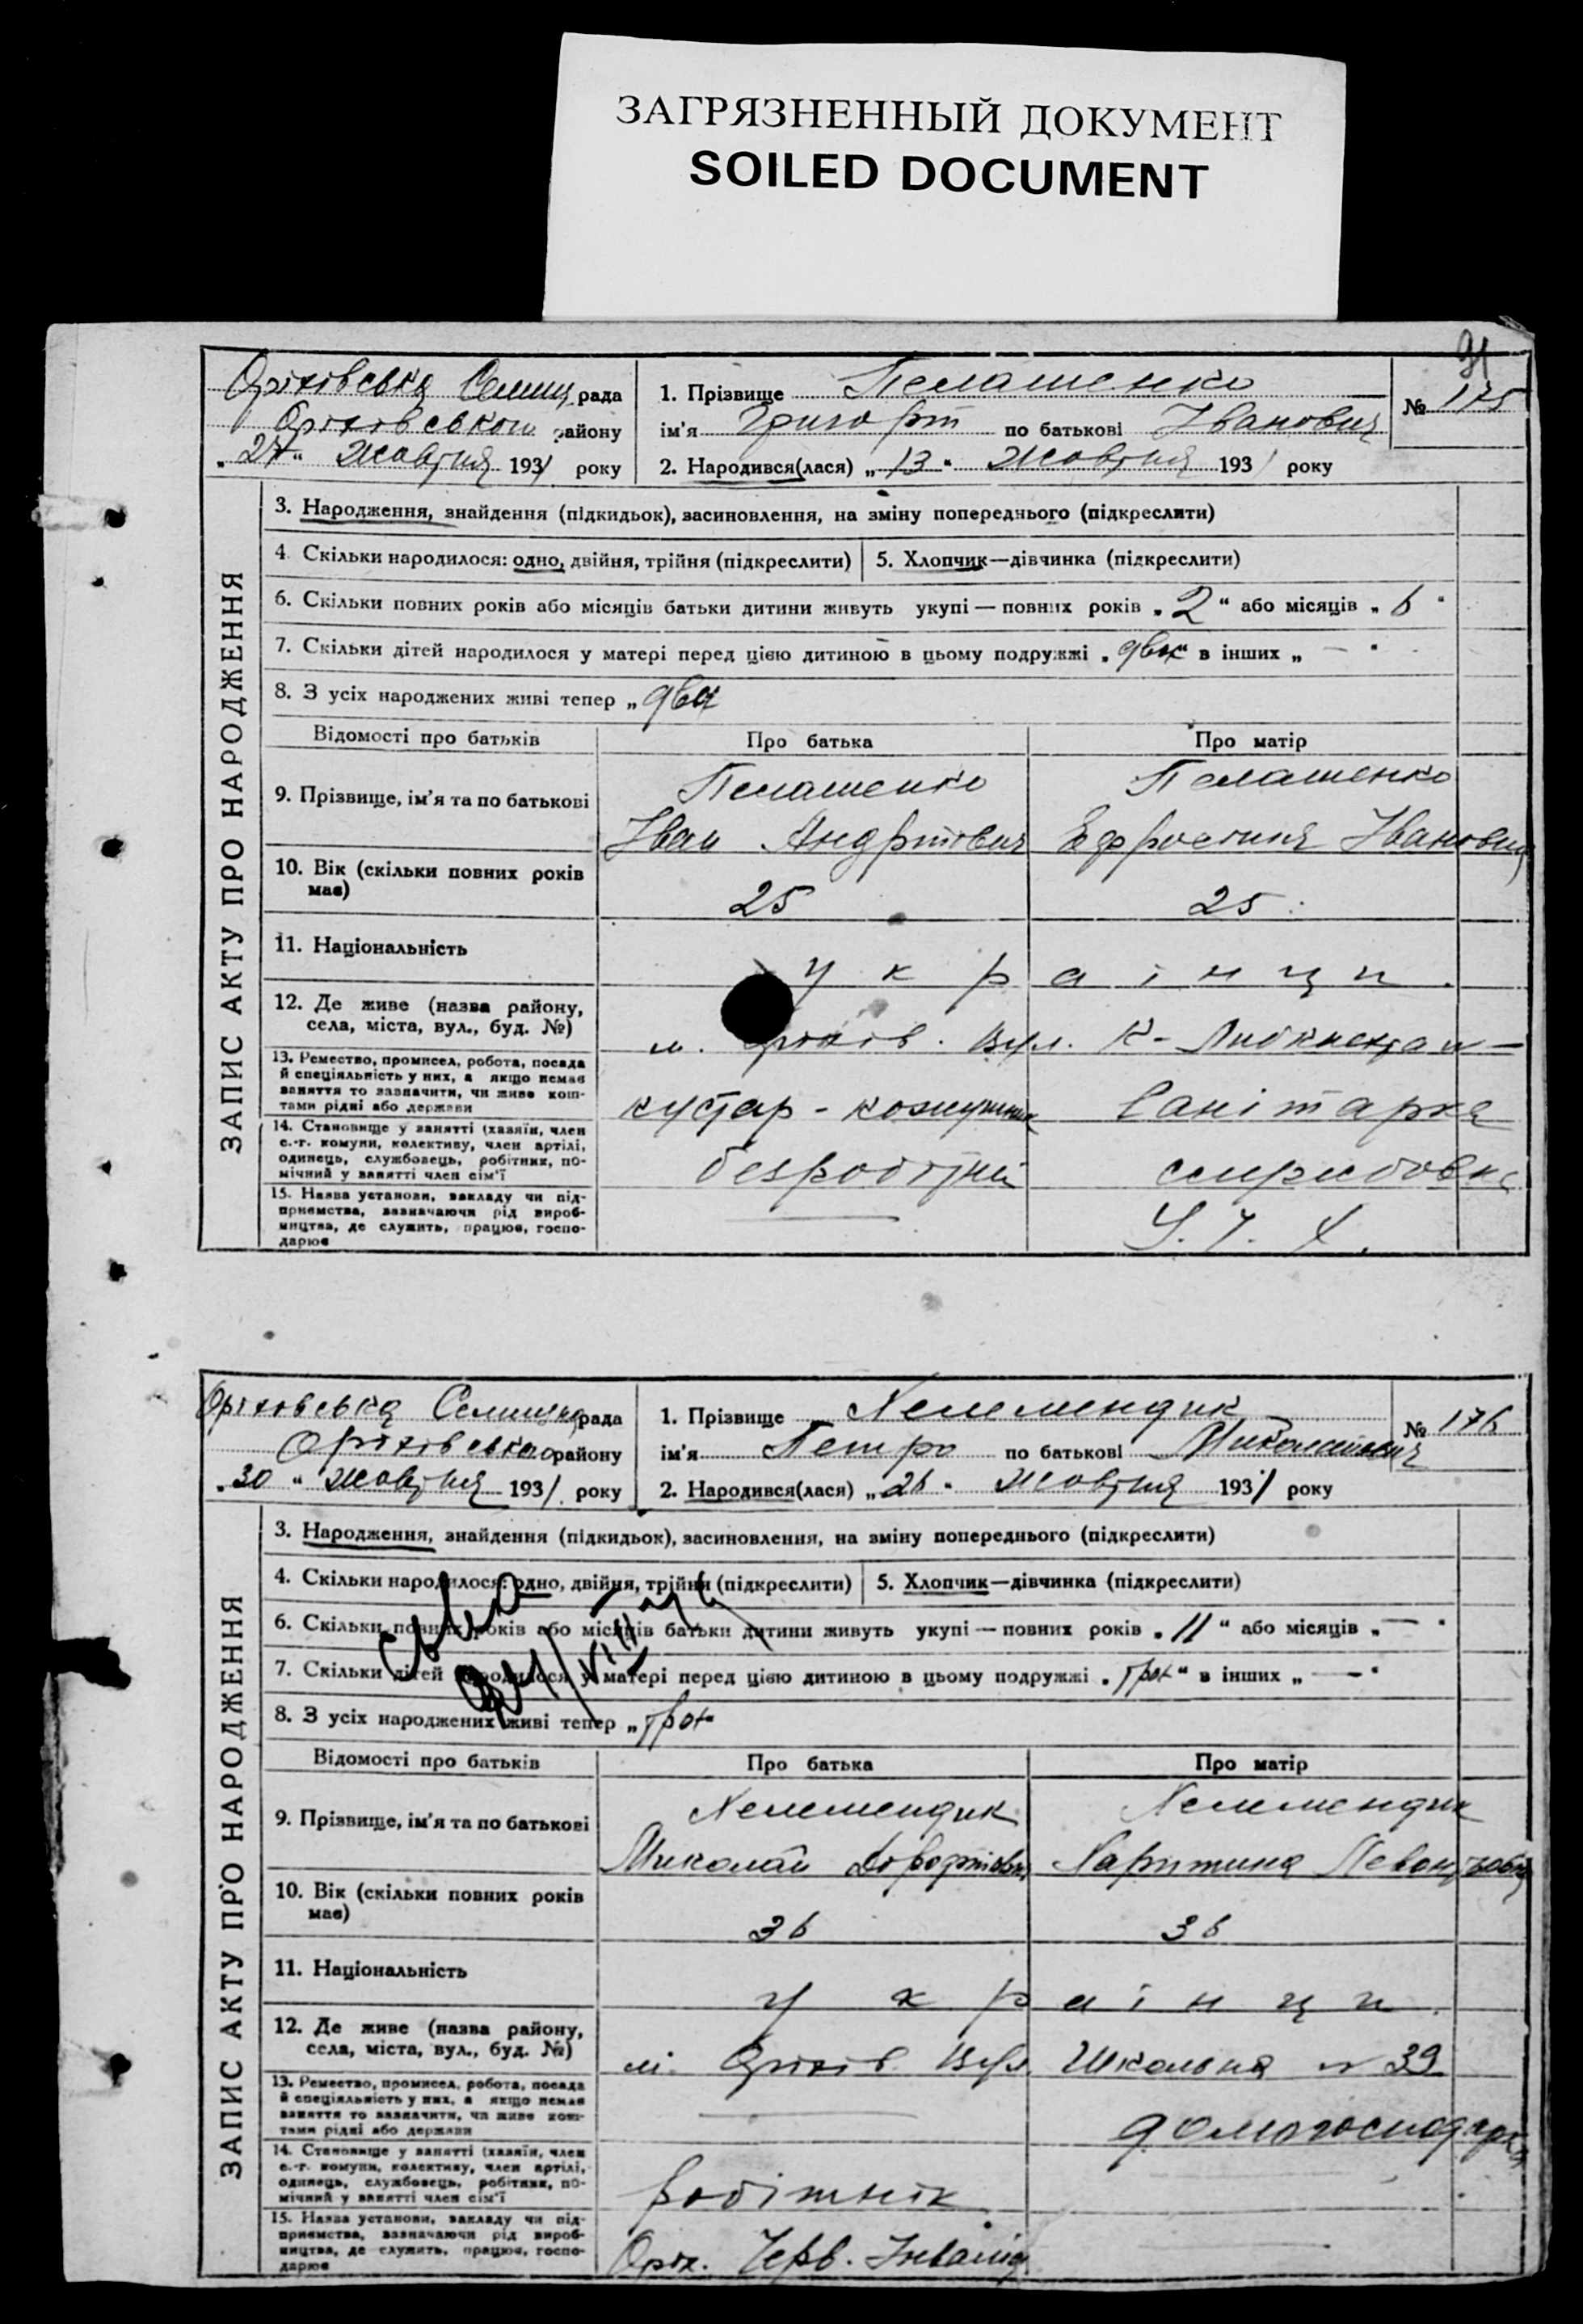 ЗАГРЯЗНЕННЫЙ ДОКУМЕНТ
SOILED DOCUMENT
91
Оріхівська Селищ рада
Оріхівського району
„27“ Жовтня 1931 року
1. Прізвище Пелашенко
ім'я Григорій по батькові Іванович
№ 175
2. Народився(лася) „13“ Жовтня 1931 року
ЗАПИС АКТУ ПРО НАРОДЖЕННЯ
3. Народження, знайдення (підкидьок), засиновлення, на зміну попереднього (підкреслити)
4. Скільки народилося: одно, двійня, трійня (підкреслити)
5. Хлопчик—дівчинка (підкреслити)
6. Скільки повних років або місяців батьки дитини живуть укупі — повних років „2“ або місяців „6“
7. Скільки дітей народилося у матері перед цією дитиною в цьому подружжі „двох“ в інших „—“
8. З усіх народжених живі тепер „два
Відомості про батьків Про батька Про матір
9. Прізвище, ім'я та по батькові
Пелашенко Пелашенко
Іван Андрійович Ефросинія Івановна
10. Вік (скільки повних років має)
25 25
11. Національність
українці.
12. Де живе (назва району, села, міста, вул., буд. №)
м. Оріхів. Вул. К-
13. Ремество, промисел, робота, посада й спеціяльність у них, а якщо немає заняття то зазначити, чи живе коштами рідні або держави
кустар - кожушник Санітарка
14. Становище у занятті (хазяїн, член с.-г. комуни, колективу, член артілі, одинець, службовець, робітник, помічний у занятті член сім'ї
безробітний
15. Назва установи, закладу чи підприємства, зазначаючи рід виробництва, де служить, працює, господарює
Оріхівська Селищна рада
Оріхівського району
„30“ Жовтня 1931 року
1. Прізвище Келемендик
ім'я Петро по батькові Миколайович
№ 176
2. Народився(лася) „26“ Жовтня 1931 року
ЗАПИС АКТУ ПРО НАРОДЖЕННЯ
3. Народження, знайдення (підкидьок), засиновлення, на зміну попереднього (підкреслити)
4. Скільки народилося: одно, двійня, трійня (підкреслити)
5. Хлопчик—дівчинка (підкреслити)
6. Скільки повних років або місяців батьки дитини живуть укупі — повних років „11“ або місяців „—“
7. Скільки дітей народилося у матері перед цією дитиною в цьому подружжі „трох“ в інших „—“
8. З усіх народжених живі тепер „трох“
Відомості про батьків Про батька Про матір
9. Прізвище, ім'я та по батькові
Келемендик Келемендик
Миколай Харитина
10. Вік (скільки повних років має)
36 36
11. Національність
українці.
12. Де живе (назва району, села, міста, вул., буд. №)
м. Оріхів Вул. Школьна № 39
13. Ремество, промисел, робота, посада й спеціяльність у них, а якщо немає заняття то зазначити, чи живе коштами рідні або держави
домогосподарка
14. Становище у занятті (хазяїн, член с.-г. комуни, колективу, член артілі, одинець, службовець, робітник, помічний у занятті член сім'ї
робітнік
15. Назва установи, закладу чи підприємства, зазначаючи рід виробництва, де служить, працює, господарює
Оріх. Черв. Інвалід